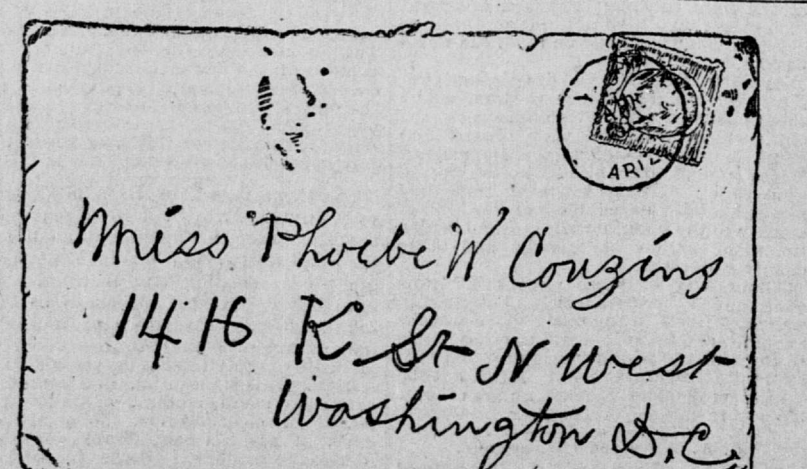 ARIZ
Miss Phoebe W Couzins
1416 K St N West
Washington D.C.